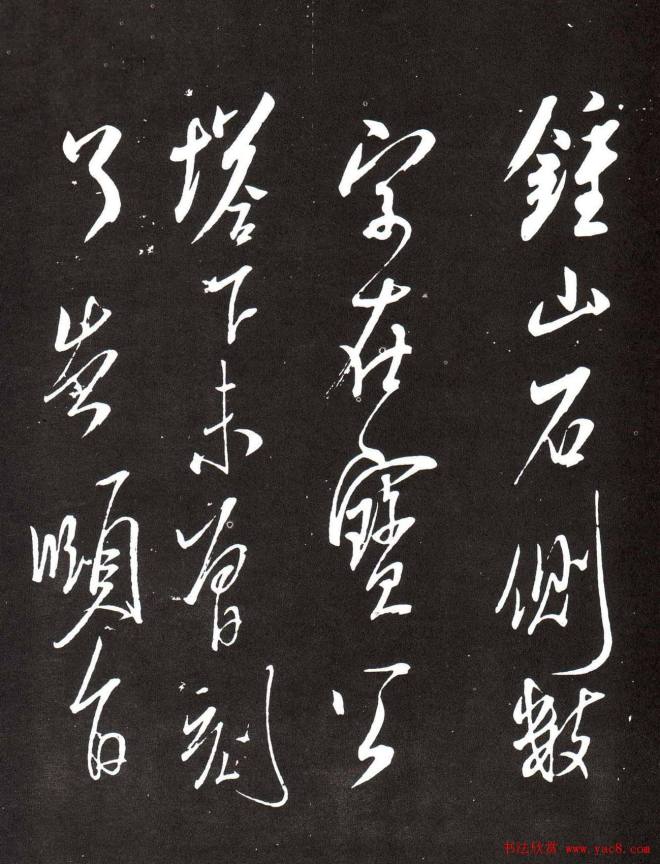 鍾山石側數
字在寶公
塔下未曾刻
了
书法欣赏 www.yac8.com